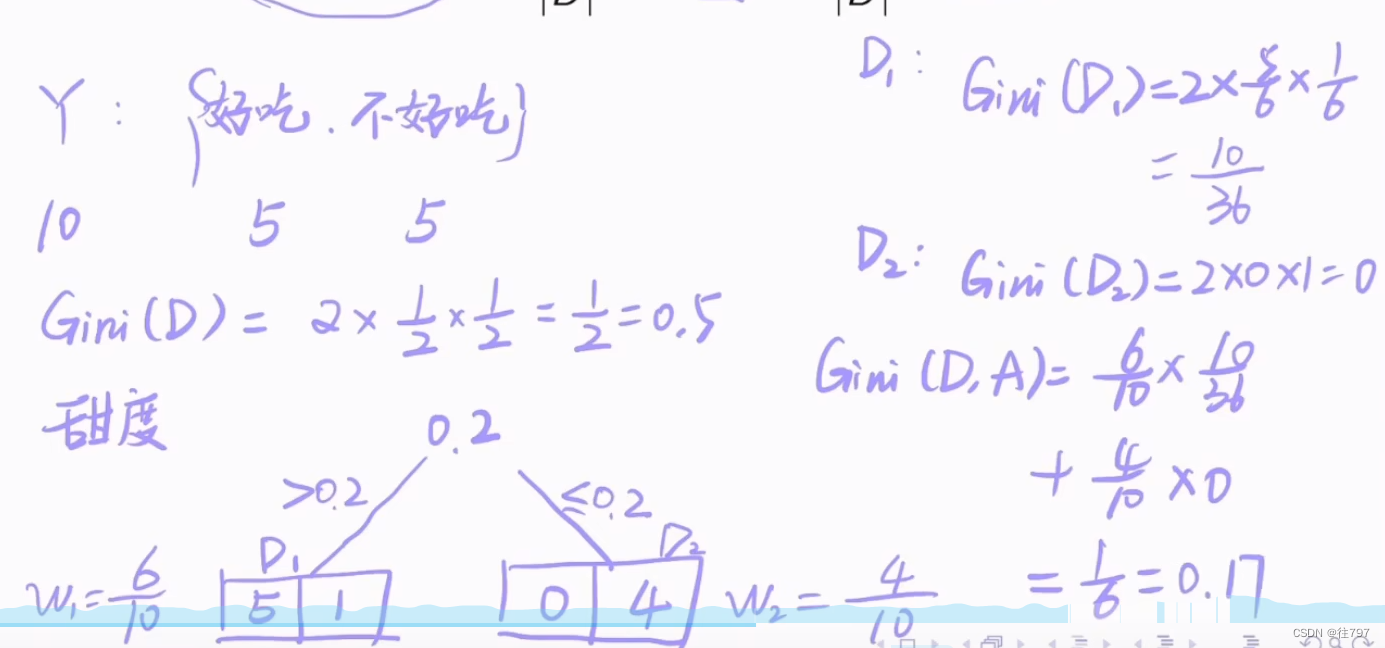 |D| |D|
Y: {好吃.不好吃}
10 5 5
Gini(D) = 2 × 1/2 × 1/2 = 1/2 = 0.5
甜度
0.2
>0.2 ≤0.2
D₁ D₂
W₁ = 6/10 5 1 0 4 W₂ = 4/10
D₁: Gini(D₁) = 2 × 5/6 × 1/6
= 10/36
D₂: Gini(D₂) = 2×0×1 = 0
Gini(D,A) = 6/10 × 10/36
+ 4/10 × 0
= 1/6 = 0.17
CSDN @往797